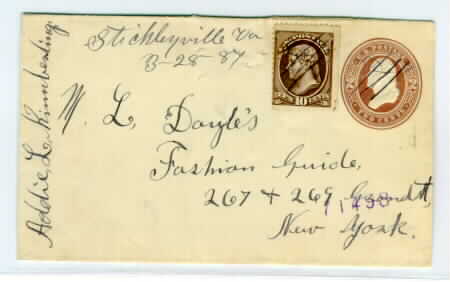 Stickleyville Va
3-28-87
U.S. POSTAGE
TEN 10 CENTS
U.S. POSTAGE
TWO CENTS
M. L. Doyle's
Fashion Guide,
267 & 269 Grand St,
11498
New York.
Addie L. Kimberling